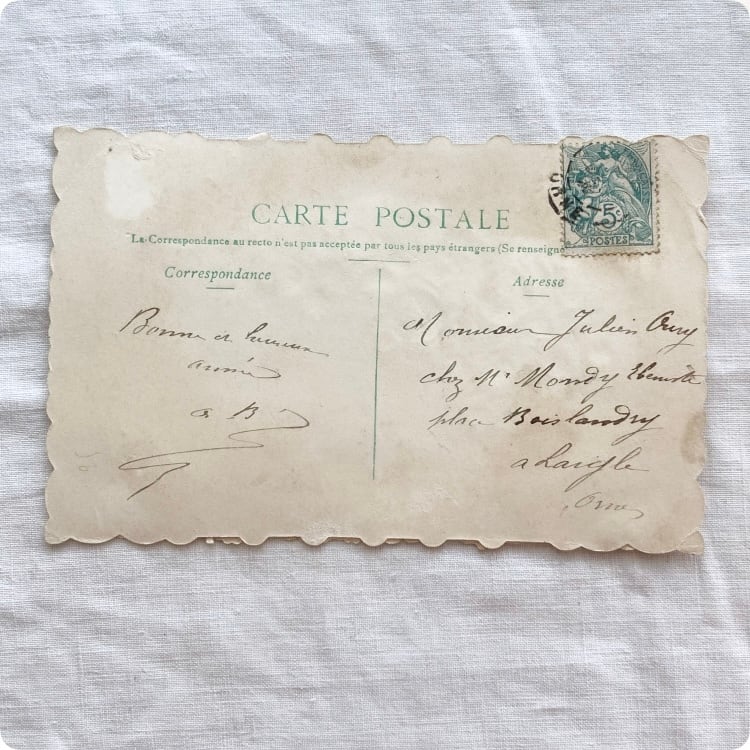 CARTE POSTALE
La Correspondance au recto n'est pas acceptée par tous les pays étrangers (Se renseigne
Correspondance
Adresse
5c
POSTES
Bonne et heureuse
année
a B
Monsieur Julien Oury
chez Mr Mondy Ebeniste
place Boislandry
a Laigle
Orne